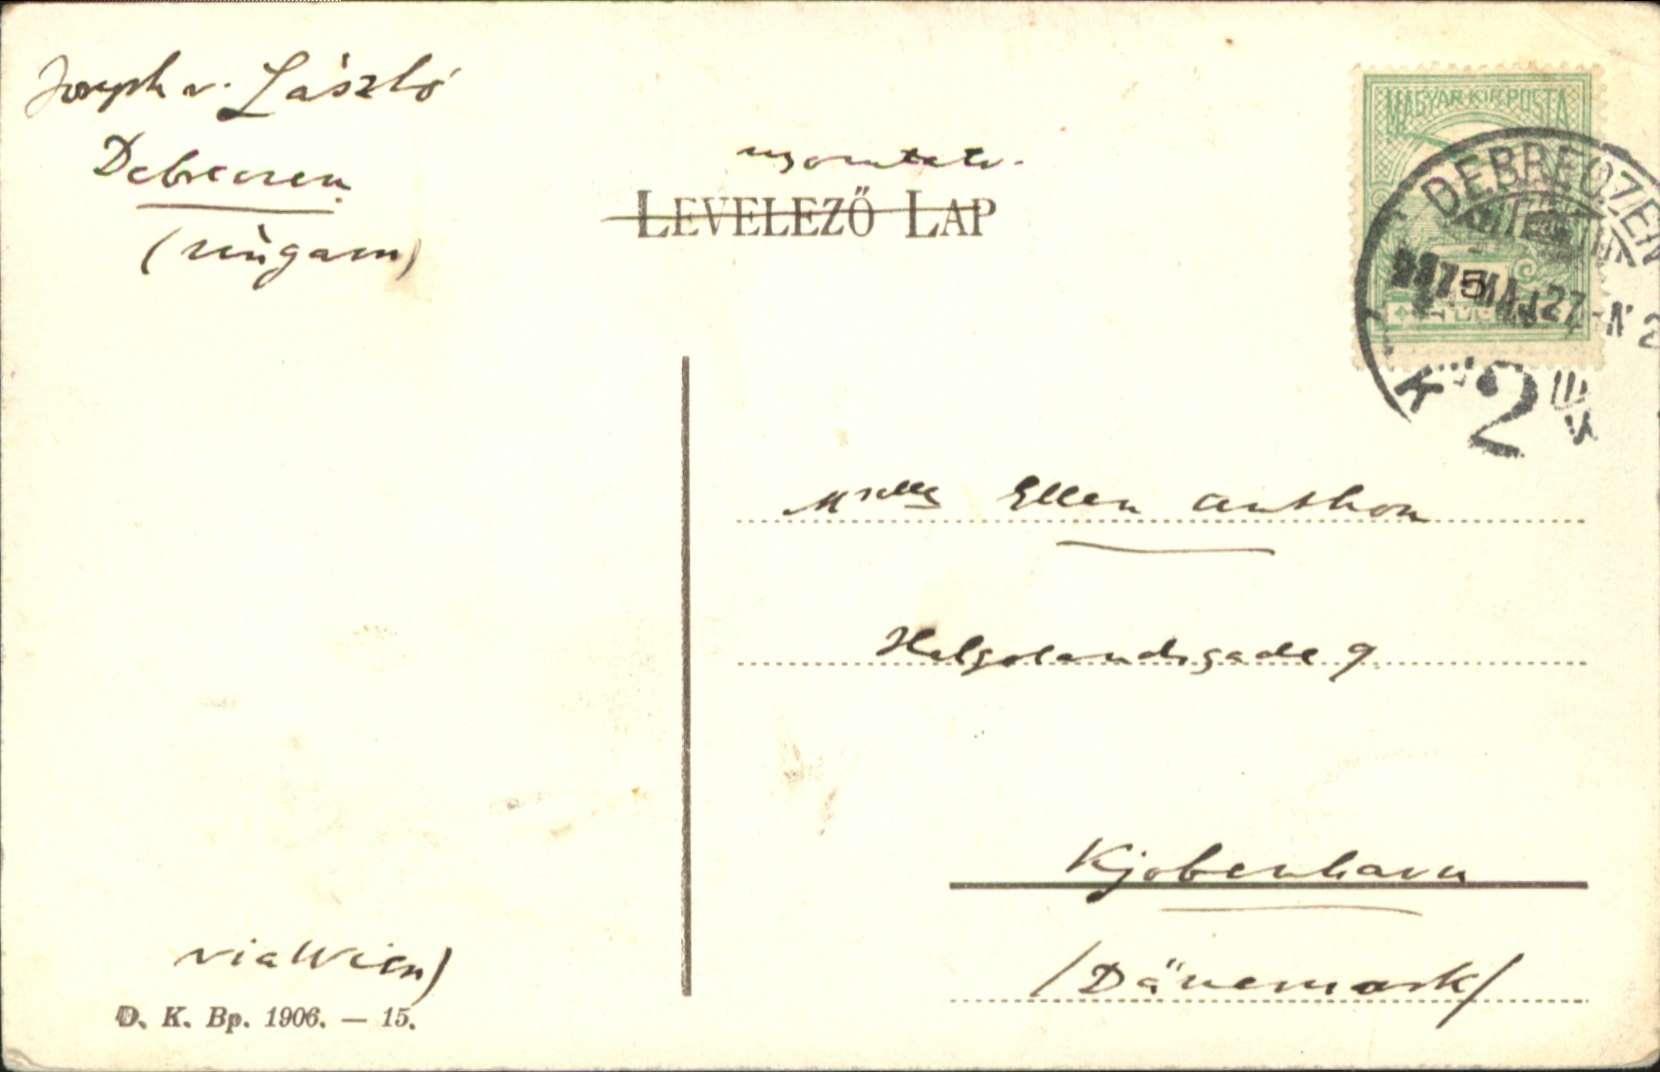 Joseph v. László
Debreczen
(Ungarn)
nyomtatv.
LEVELEZŐ LAP
MAGYAR KIR. POSTA
5
DEBRECZEN
907 MÁJ 27
2
Mselle Ellen Anthon
Helgolandsgade 9.
Kjobenhavn
/Dänemark/
via Wien)
D. K. Bp. 1906. — 15.